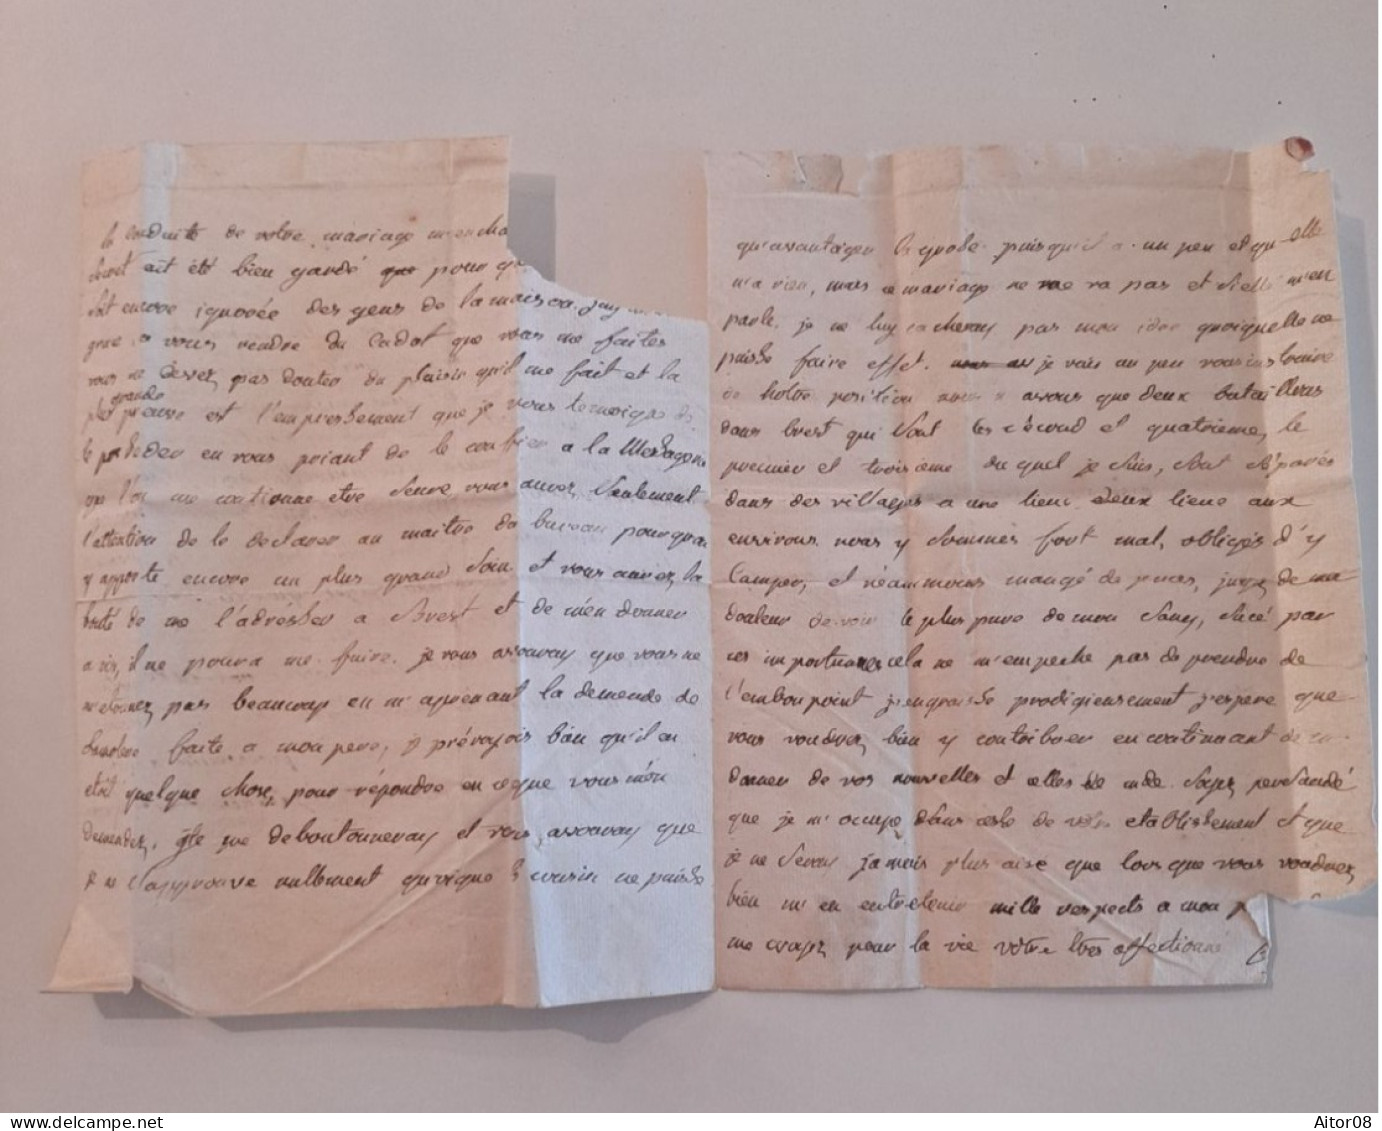 la conduite de votre mariage m'encha
secret ait été bien gardé que pour qu
soit encore ignorée des gens de la maison. j'ay
vous rendre du Cadot que vous me faites
vous ne devez pas douter du plaisir qu'il me fait et la
grande
plus preuve est l'empressement que je vous temoigne de
le posseder en vous priant de le confier a la Messagerie
que l'on me continue etre seure, vous aurez seulement
l'attention de le declarer au maitre du bureau pourquoi
y apporte encore un plus grand soin et vous auriez la
bonté de me l'adrésser a Brest et de m'en donner
avis, il ne poura me fuire. je vous avouray que vous ne
m'etonnez pas beaucoup en m'aprenant la demende de
faite a mon pere, je prévoyois bien qu'il en
etoit quelque chose, pour répondre en ce que vous m'en
demendez, que deboutonneray et vous avouray que
je ne l'approuve nullement quoique le cousin ne puisse
qu'avantager la puisqu'il a un peu et qu'elle
n'a rien, mais ce mariage ne va pas et si elle m'en
parle je ne luy cacheray pas mon idée quoiquelle ne
puisse faire effet. je vais un peu vous instruire
de notre position nous avons que deux bataillons
dans brest qui sont les sécond et quatrieme, le
premier et troisieme du quel je suis, sont séparés
dans des villages a une lieue deux lieue aux
environs nous y sommes fort mal, obligés d'y
Camper, et néammoins mangé de puces, jugez de ma
douleur de voir le plus pure de mon sang, sucé par
ces importunes cela ne m'empeche pas de prendre de
l'embonpoint j'engraisse prodigieusement j'espere que
vous voudrez bien y contribuer en continuant de me
donner de vos nouvelles et celles de mde. soyez persuadé
que je m'occupe dans celle de votre etablissement et que
je ne seray jamais plus aise que lorsque vous voudrez
bien m'en entretenir mille respects a mon p
me croyez pour la vie votre tres affectionné
Aitor08